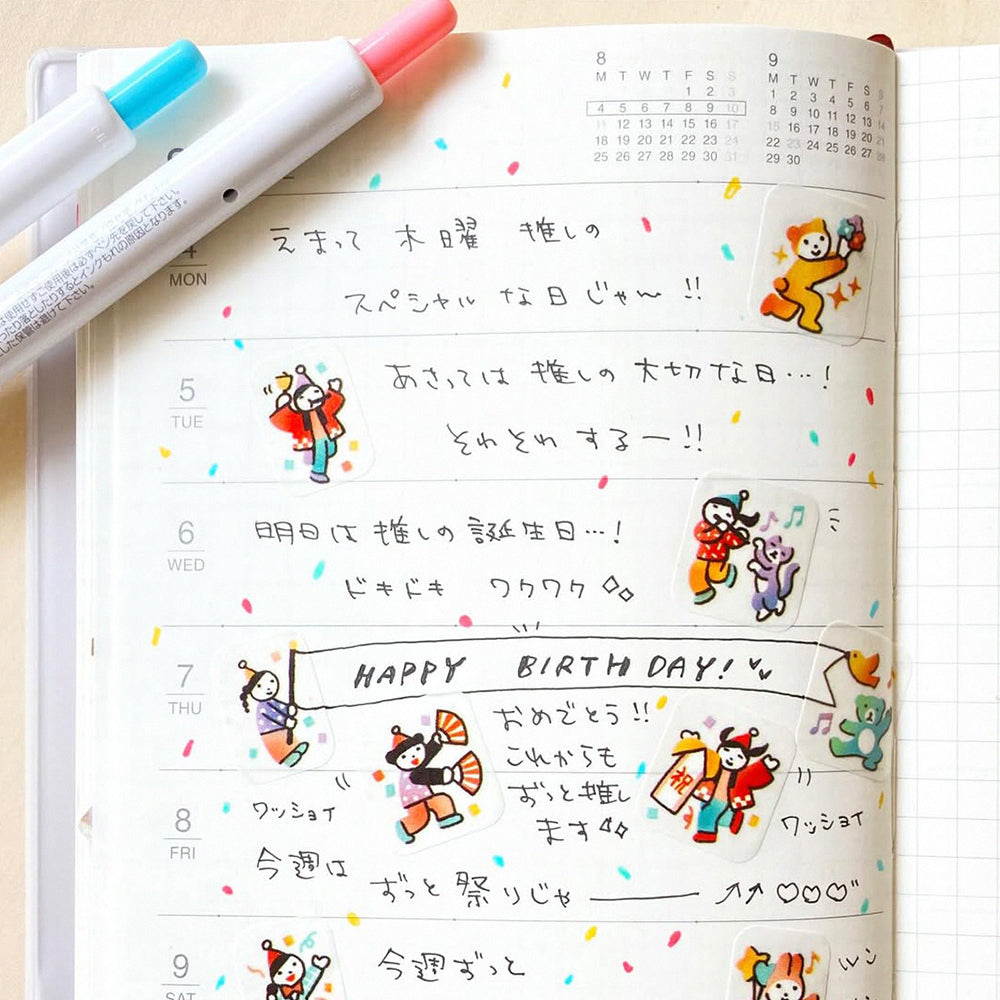 8
M T W T F S S
1 2 3
4 5 6 7 8 9 10
11 12 13 14 15 16 17
18 19 20 21 22 23 24
25 26 27 28 29 30 31
9
M T W T F S S
1 2 3 4 5 6 7
8 9 10 11 12 13 14
15 16 17 18 19 20 21
22 23 24 25 26 27 28
29 30
4
MON
えまって 木曜 推しの
スペシャル な日 じゃ〜 !!
5
TUE
あさっては 推しの 大切な日…!
それそれ するー!!
6
WED
明日は 推しの 誕生日…!
ドキドキ ワクワク
7
THU
HAPPY BIRTHDAY!
おめでとう!!
これからも
ずっと推し
ます
祝
8
FRI
ワッショイ
ワッショイ
今週は
ずっと 祭りじゃ――― ↗↗ ♡♡♡"
9
SAT
今週ずっと